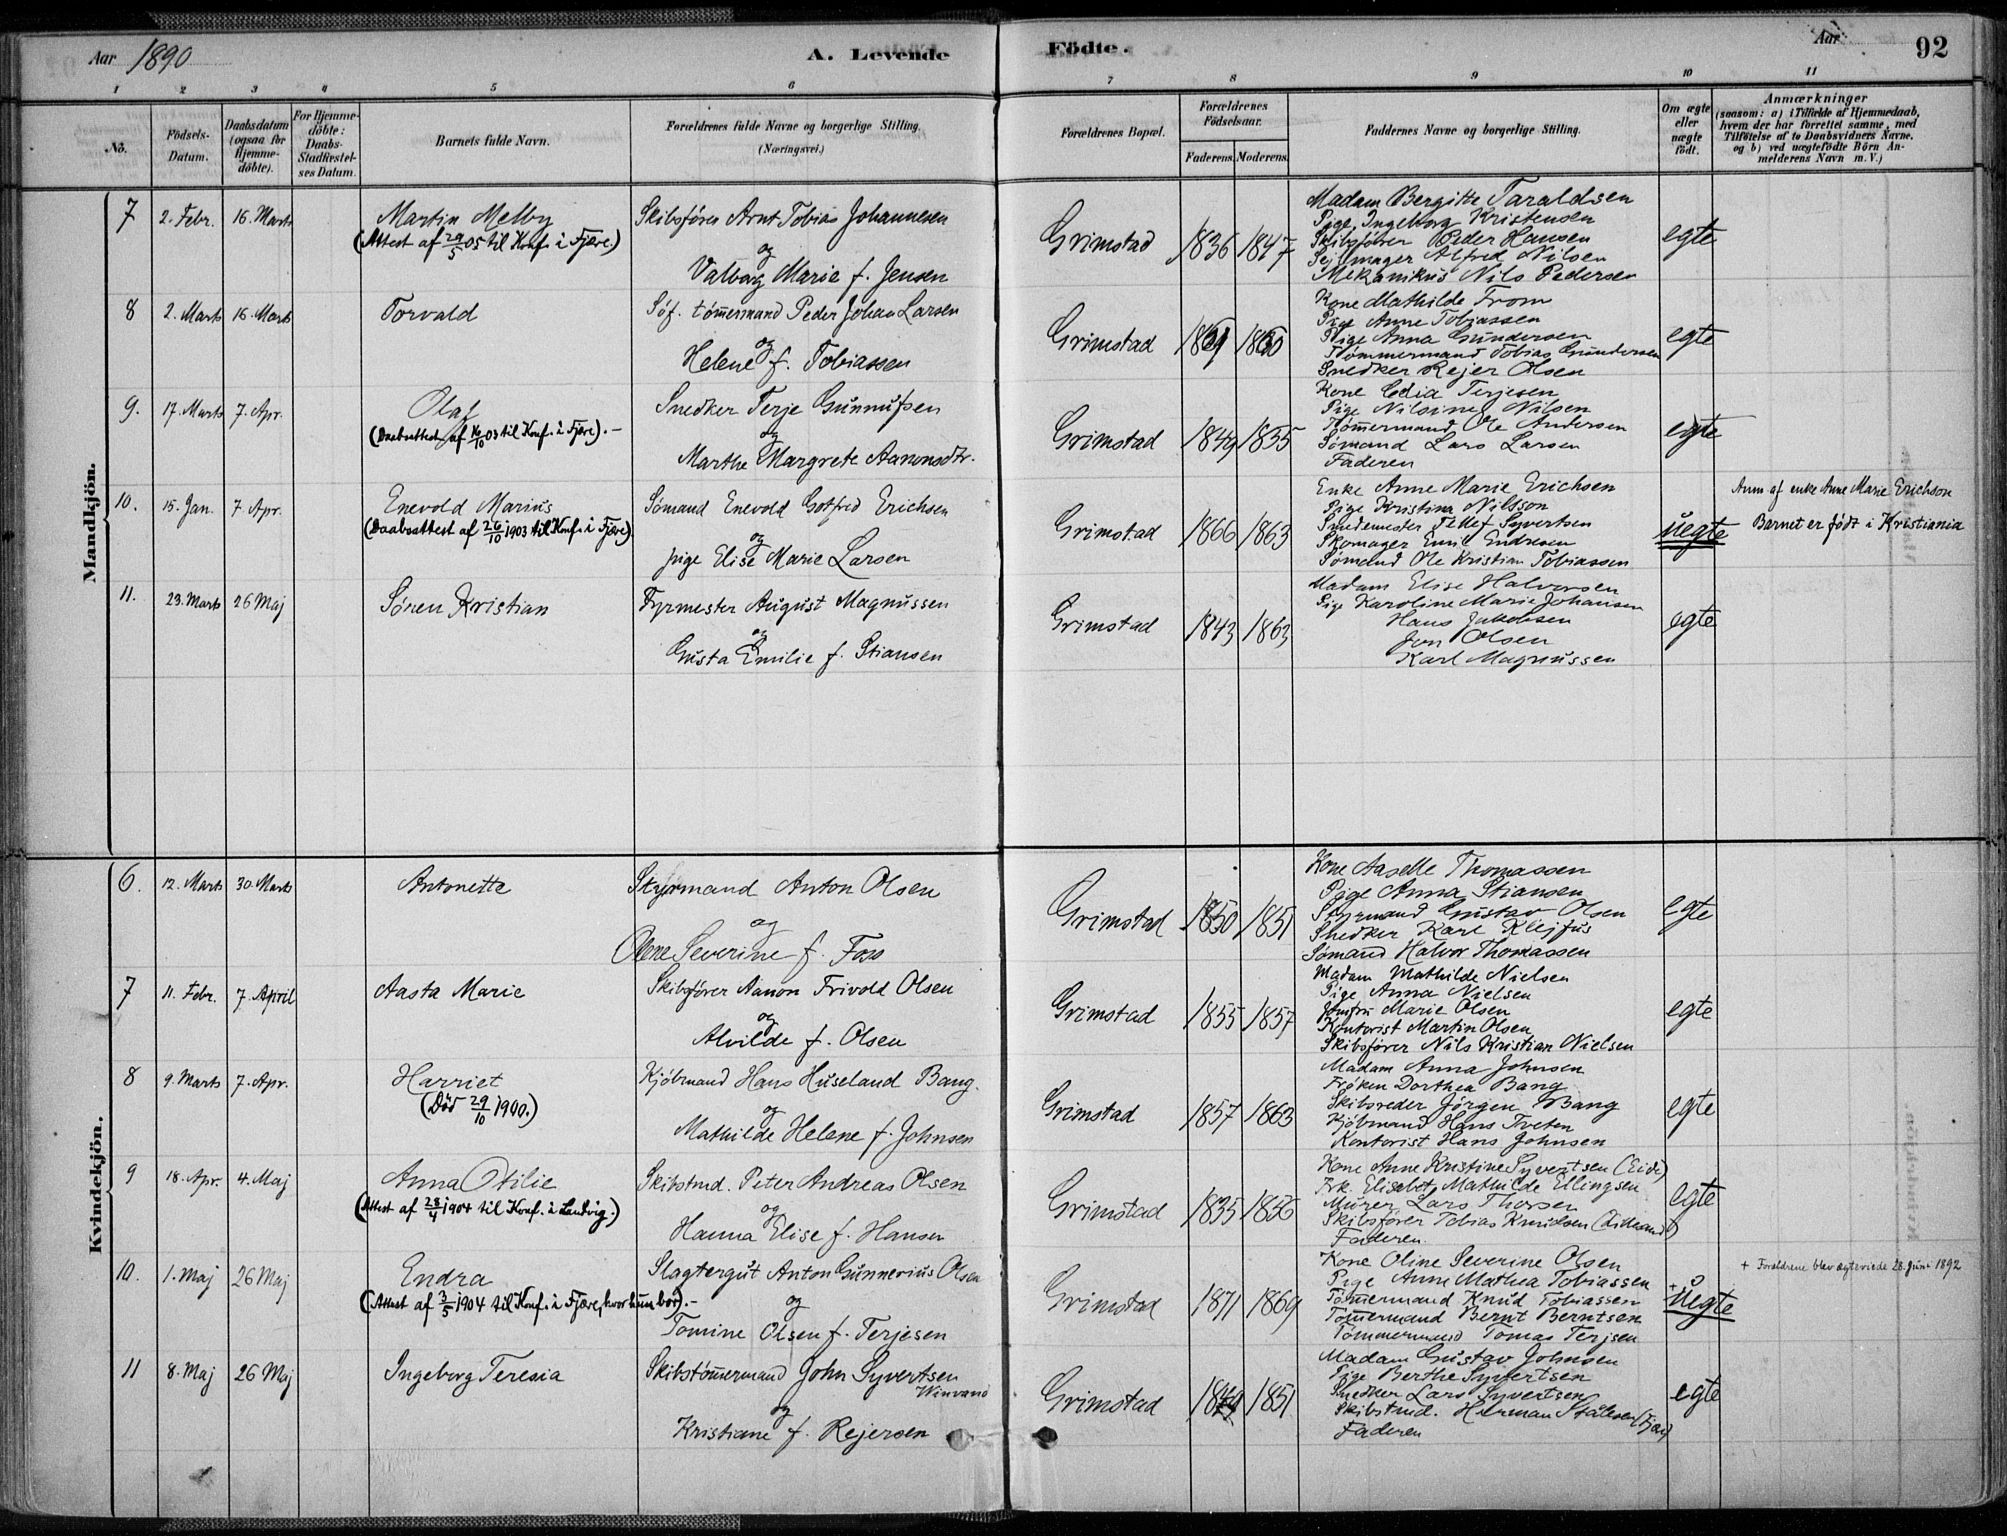 Aar 1890 A. Levende Födte. Aar 92
1 2 3 4 5 6 7 8 9 10 11
No.
Födsels-Datum.
Daabsdatum (ogsaa for Hjemme-döbte).
For Hjemme-döbte: Daabs-Stadfæstel-ses Datum.
Barnets fulde Navn.
Forældrenes fulde Navne og borgerlige Stilling. (Næringsvei.)
Forældrenes Bopæl.
Forældrenes Födselsaar.
Faderens. Moderens.
Faddernes Navne og borgerlige Stilling.
Om ægte eller uægte födt.
Anmærkninger
(saasom: a) i Tilfælde af Hjemmedaab,
hvem der har forrettet samme, med
Tilföielse af to Daabsvidners Navne.
og b) ved uægtefödte Börn An-
melderens Navn m. V.)
Mandkjön.
7 2. Febr. 16. Marts Martin Melby
(Attest af 29/5 05 til Konf. i Fjære)
Skibsfører Arnt Tobias Johannesen
og
Valborg Marie f. Jensen
Grimstad 1836 1847
Madam Bergitte Taraldsen
Pige Ingeborg Kristensen
Skibsfører Peder Hansen
Sejlmager Alfred Nilsen
Mekanikus Nils Pedersen
egte
8 2. Marts 16. Marts Torvald
Söf. tömmermand Peder Johan Larsen
og
Helene f. Tobiassen
Grimstad
Kone Mathilde From
Pige Anne Tobiassen
Pige Anna Gundersen
Tömmermand Tobias Gundersen
Snedker Rejer Olsen
egte
9. 17. Marts 7. Apr. Olaf
(Daabsattest af 16/10 03 til Konf. i Fjære).-
Snedker Terje Gunnufsen
og
Marthe Margrete Aanonsdtr.
Grimstad 1849 1855
Kone Edia Terjesen
Pige Nilsine Nilsen
Tömmermand Ole Andersen
Sömand Lars Larsen
Faderen
egte
10. 15. Jan. 7 Apr. Enevold Marius
(Daabsattest af 26/10 1903 til Konf. i Fjære)
Sömand Enevold Gotfred Erichsen
og
pige Elise Marie Larsen
Grimstad 1866 1863
Enke Anne Marie Erichsen
Pige Kristina Nilsson
Smedemester Detlef Syvertsen
Skomager Emil Endresen
Sömand Ole Kristian Tobiassen
uegte
Anm af enke Anne Marie Erichson
Barnet er født i Kristiania
11. 23. Marts 26 Maj Sören Kristian
Fyrmester August Magnussen
og
Gusta Emilie f. Stiansen
Grimstad 1843 1863
Madam Elise Halvorsen
Pige Karoline Marie Johansen
Hans Jakobsen
Jon Olsen
Karl Magnussen
egte
Kvindekjön.
6. 12. Marts 30. Marts Antonette
Styrmand Anton Olsen
og
Olene Severine f. Foss
Grimstad 1850 1851
Kone Aaselle Thomassen
Pige Anna Stiansen
Styrmand Gustav Olsen
Snedker Karl Klejfus
Sömand Halvor Thomassen
egte
7 11. Febr. 7. April Aasta Marie
Skibsfører Aanon Frivold Olsen
og
Alvilde f. Olsen
Grimstad 1855 1857
Madam Mathilde Nielsen
Pige Anna Nielsen
Jomfru Marie Olsen
Kontorist Martin Olsen
Skibsfører Nils Kristian Nielsen
egte
8 9. Marts 7. Apr. Harriet
(Död 29/10 1900.)
Kjöbmand Hans Huseland Bang.
og
Mathilde Helene f. Johnsen
Grimstad 1857 1863
Madam Anna Johnsen
Fröken Dorthea Bang
Skibsreder Jörgen Bang
Kjöbmand Hans Tveten
Kontorist Hans Johnsen
egte
9 18. Apr. 4. Maj Anna Otilie
(Attest af 28/4 1904 til Konf. i Landvig.)
Skibstmd. Peter Andreas Olsen
og
Hanna Elise f. Hansen
Grimstad 1835 1856
Kone Anne Kristine Syvertsen (Eide)
Frk. Elisabet Mathilde Ellingsen
Murer Lars Thorsen
Skibsfører Tobias Knudsen
Faderen
egte
10. 1. Maj 26 Maj Endra
(Attest af 3/5 1904 til Konf. i Fjære, hvor hun bor).-
Slagtergut Anton Gunnerius Olsen
og
Tomine Olsen f. Terjesen
Grimstad 1871 1869
Kone Oline Severine Olsen
Pige Anne Mathea Tobiassen
Tömmermand Knud Tobiassen
Tömmermand Bernt Berntsen
Tömmermand Tomas Terjsen
+ uegte
+ Forældrene blev ægteviede 28. Juni 1892
11 8. Maj 26 Maj Ingeborg Teresia
Skibstömmermand John Syvertsen
og
Kristiane f. Rejersen
Grimstad 1849 1851
Madam Gustav Johnsen
Pige Berthe Syvertsen
Snedker Lars Syvertsen
Skibstmd. Herman Stålesen (Fjære)
Faderen
egte